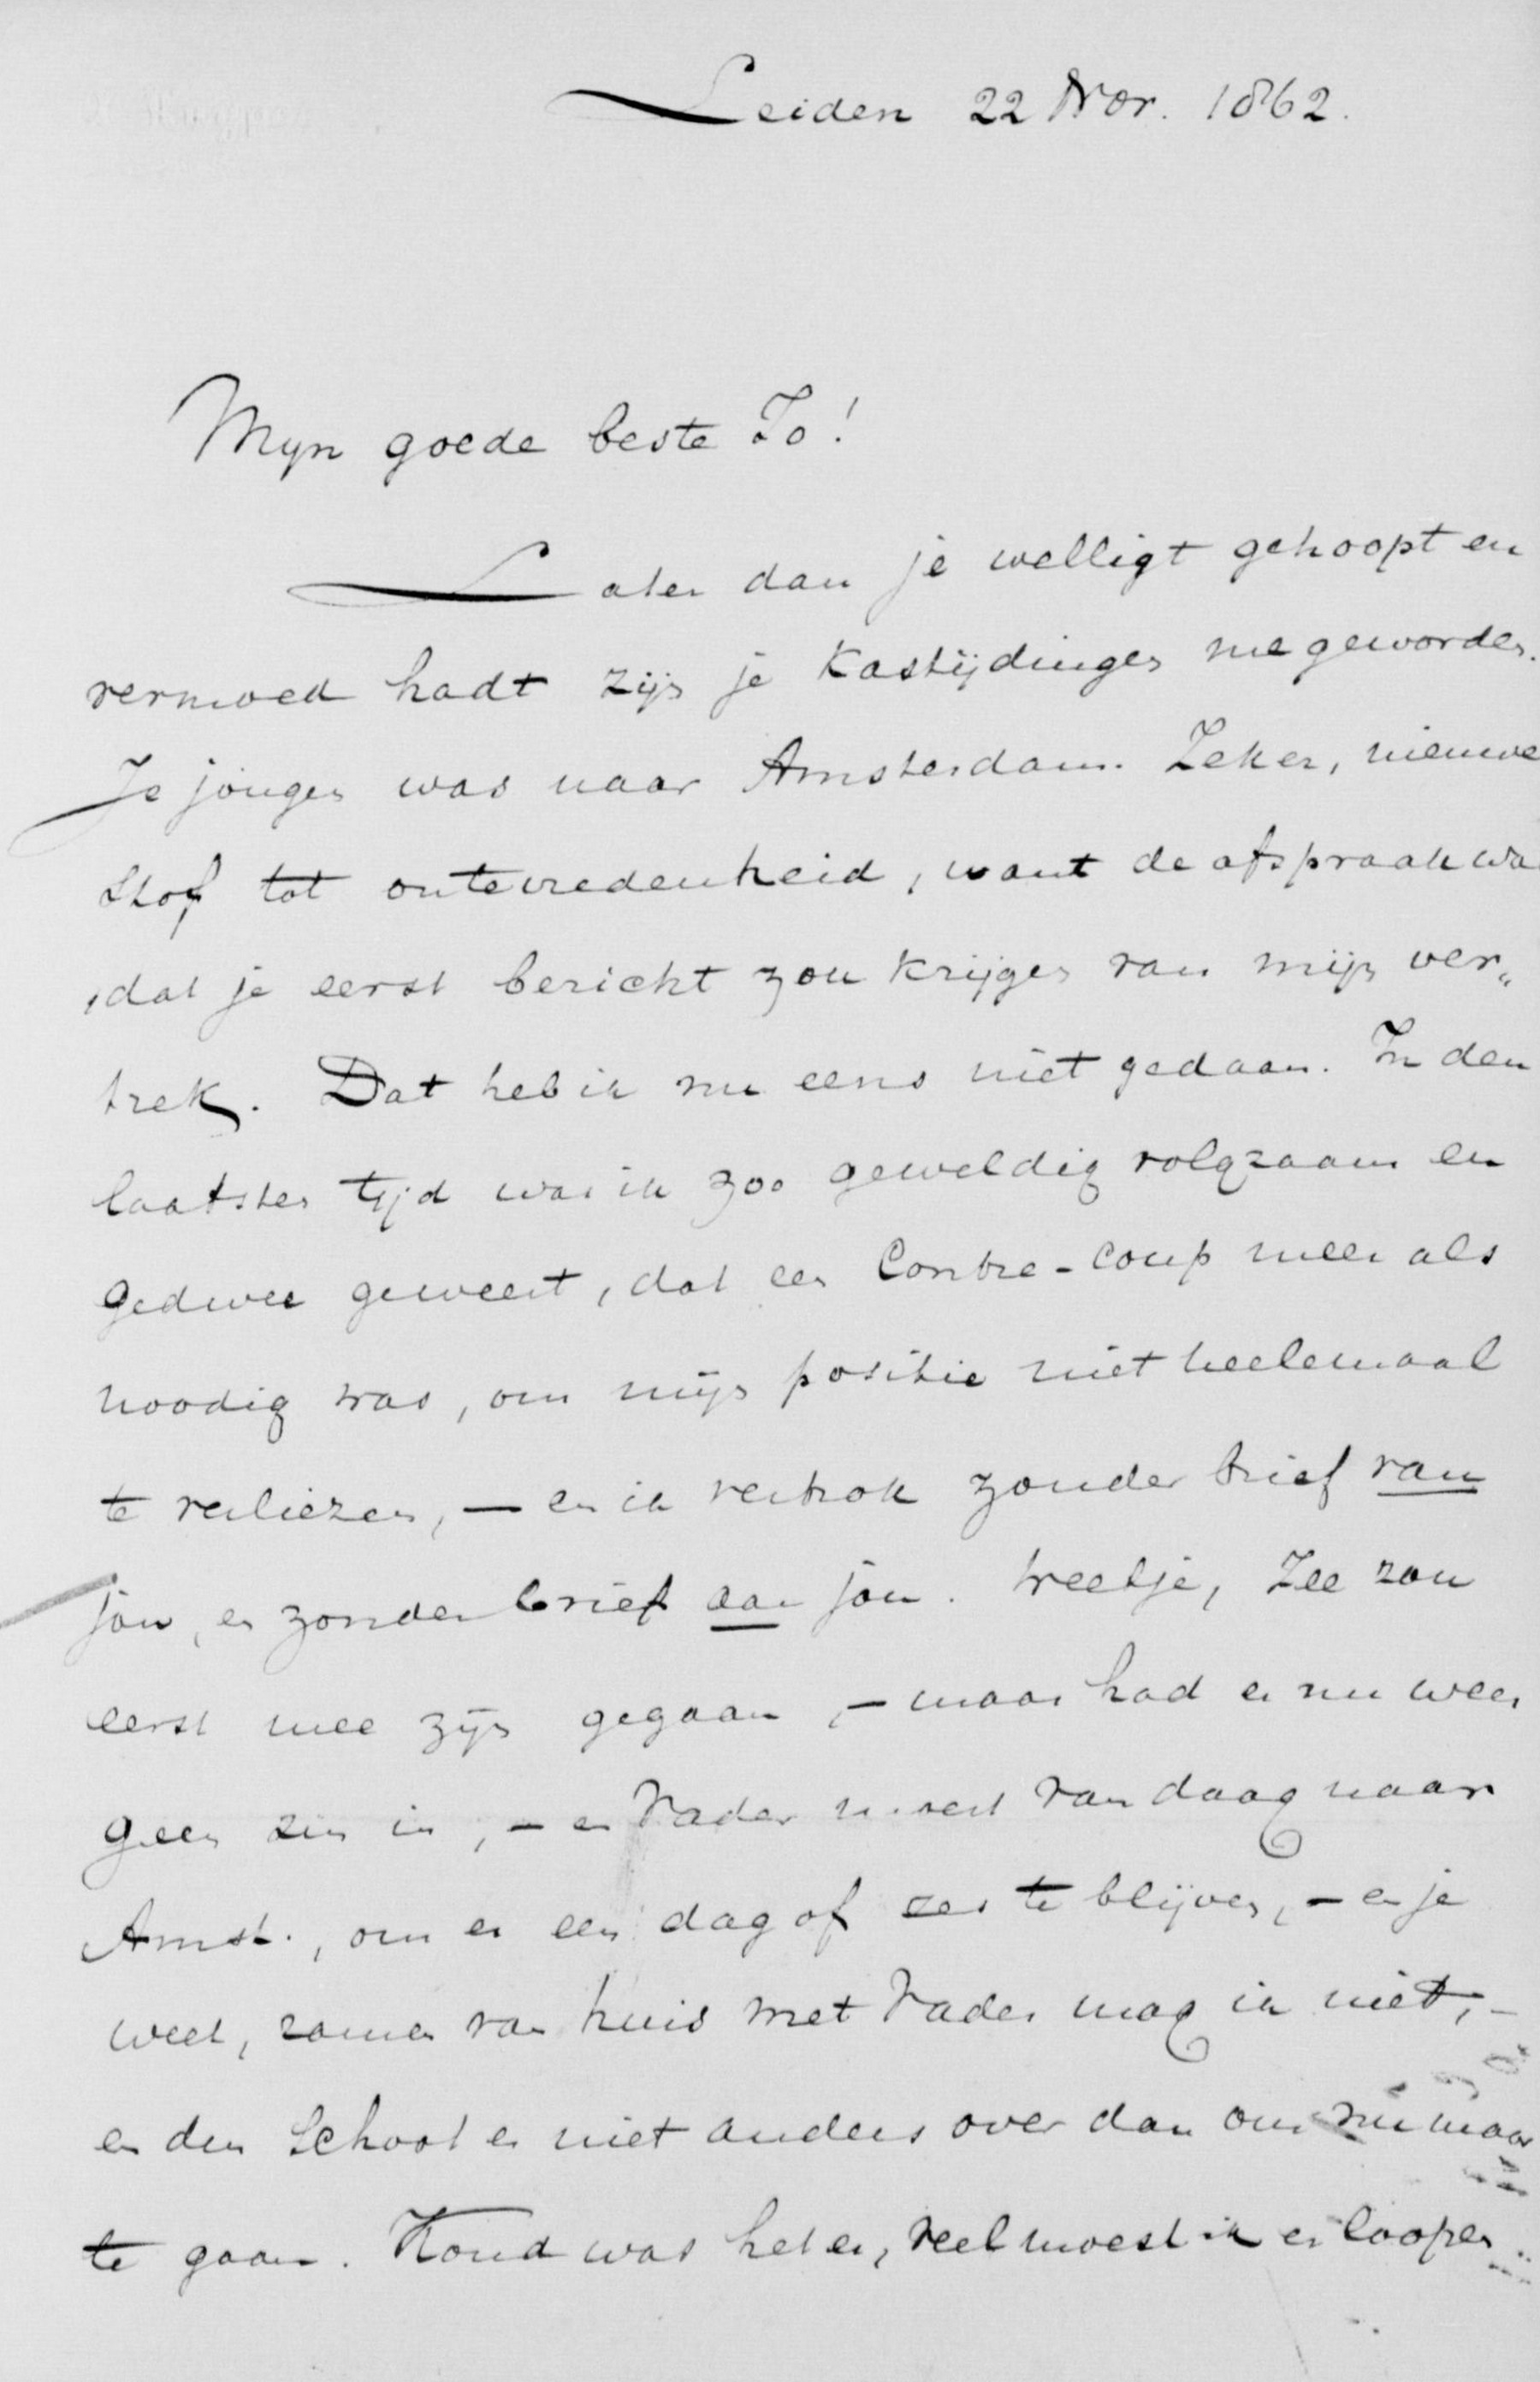 Leiden 22 Nov. 1862.
Myn goede beste Jo!
Later dan je welligt gehoopt en
vermoed hadt zijn je kastijdingen me geworden.
Je jongen was naar Amsterdam. Zeker, nieuwe
stof tot ontevredenheid, want de afspraak wa
dat je eerst bericht zou krijgen van mijn ver„
trek. Dat heb ik nu eens niet gedaan. In den
laatsten tijd was ik zoo geweldig volgzaam en
gedwee geweest, dat een Contre-coup meer als
noodig was, om mijn positie niet heelemaal
te verliezen, — en ik vertrok zonder brief van
jou, en zonder brief aan jou. Zee zou
eerst mee zijn gegaan, — maar had er nu weer
geen zin in, — en Vader moest van daag naar
Amst., om er een dag of zes te blijven, — en je
weet, zamen van huis met Vader mag ik niet, —
en dus schoot er niet anders over dan om nu maar
te gaan. Koud was het er, veel moest ik er loopen.